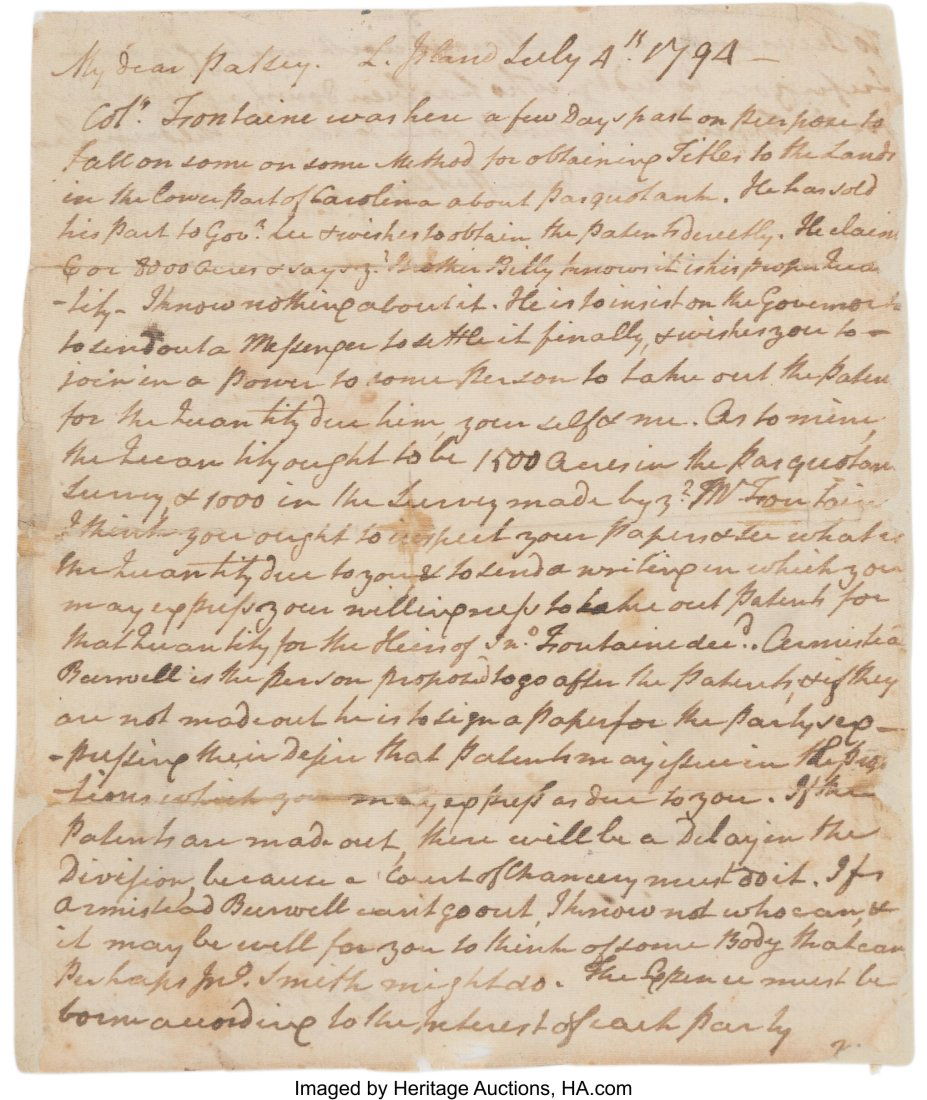 My dear Patsey. L. Island July 4th. 1794 —
Colo. Fontaine was here a few Days past on purpose to
fall on some on some Method for obtaining Titles to the Lands
in the lower Part of Carolina about Pasquotank. He has sold
his Part to Govr. Lee & wishes to obtain the Patents directly. He claims
6 or 8000 Acres & says yr. Brother Billy knows it is his proper Quan
-tity - I know nothing about it. He is to insist on the Governor
to send out a Messenger to settle it finally, & wishes you to —
join in a Power to some Person to take out the Paten
for the Quantity due him, your self & me. As to mine,
the Quantity ought to be 1500 Acres in the Pasquotan
Survey & 1000 in the Survey made by yr. Wm Fontain
I think you ought to inspect your Papers & see what is
the Quantity due to you & to send a writing in which you
may express your willingness to take out Patents for
that Quantity for the Heirs of Jno. Fontaine decd. Armistea
Burwell is the Person proposed to go after the Patents, & if they
are not made out he is to sign a Paper for the Partys ex —
- pressing their Desire that Patents may issue in the Pro
-tions which you may express as due to you. If the
Patents are made out, there will be a Delay in the
Division, because a Court of Chancery must do it. If
Armistead Burwell cant go out I know not who can, &
it may be well for you to think of some Body that can
Perhaps Jno. Smith might do. The Expence must be
born according to the Interest of each Party
Imaged by Heritage Auctions, HA.com